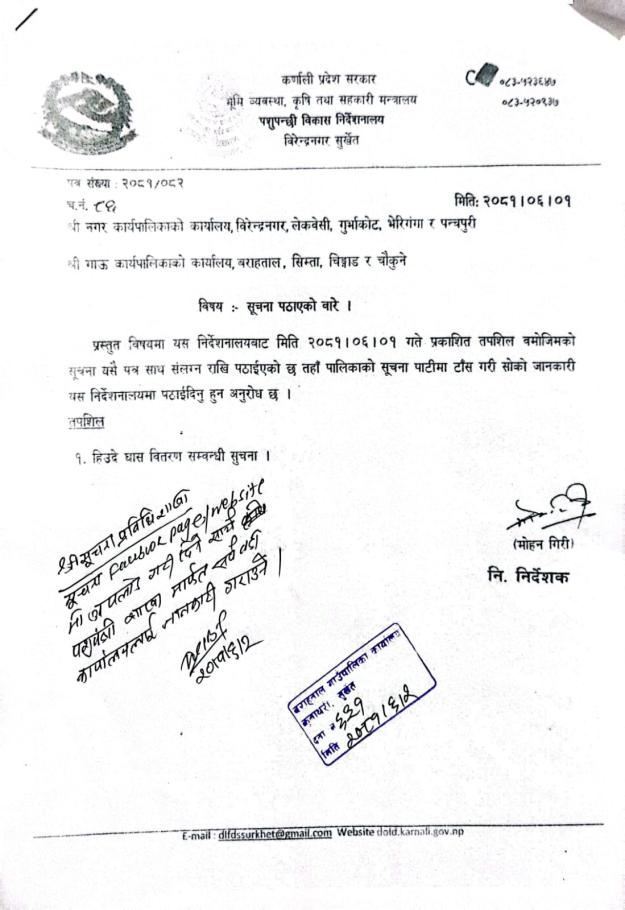 कर्णाली प्रदेश सरकार
भूमि व्यवस्था, कृषि तथा सहकारी मन्त्रालय
पशुपन्छी विकास निर्देशनालय
विरेन्द्रनगर सुर्खेत
०८३-५२३६४७
०८३-५२०९३७
पत्र संख्या : २०८१/०८२
च.नं. ८६
मिति: २०८१।०६।०१
श्री नगर कार्यपालिकाको कार्यालय, विरेन्द्रनगर, लेकवेसी, गुर्भाकोट, भेरिगंगा र पन्चपुरी
श्री गाऊ कार्यपालिकाको कार्यालय, बराहताल, सिम्ता, चिङ्गाड र चौकुने
विषय :- सूचना पठाएको बारे ।
प्रस्तुत विषयमा यस निर्देशनालयबाट मिति २०८१।०६।०१ गते प्रकाशित तपशिल वमोजिमको
सूचना यसै पत्र साथ संलग्न राखि पठाईएको छ तहाँ पालिकाको सूचना पाटीमा टाँस गरी सोको जानकारी
यस निर्देशनालयमा पठाईदिनु हुन अनुरोध छ ।
तपशिल
१. हिउदे घास वितरण सम्वन्धी सुचना ।
श्री सूचना प्रविधि शाखा
सूचना facebook page/website
मा अपलोड गरी दिने साथै
पशुपंछी शाखा मार्फत सबै वडा
कार्यालयलाई जानकारी गराउने ।
२०८१/६/२
(मोहन गिरी)
नि. निर्देशक
बराहताल गाउँपालिका कार्यालय
कुनाथरी, सुर्खेत
दर्ता नं ६३१
मिति २०८१/६/२
E-mail : dlfdssurkhet@gmail.com Website dold.karnali.gov.np